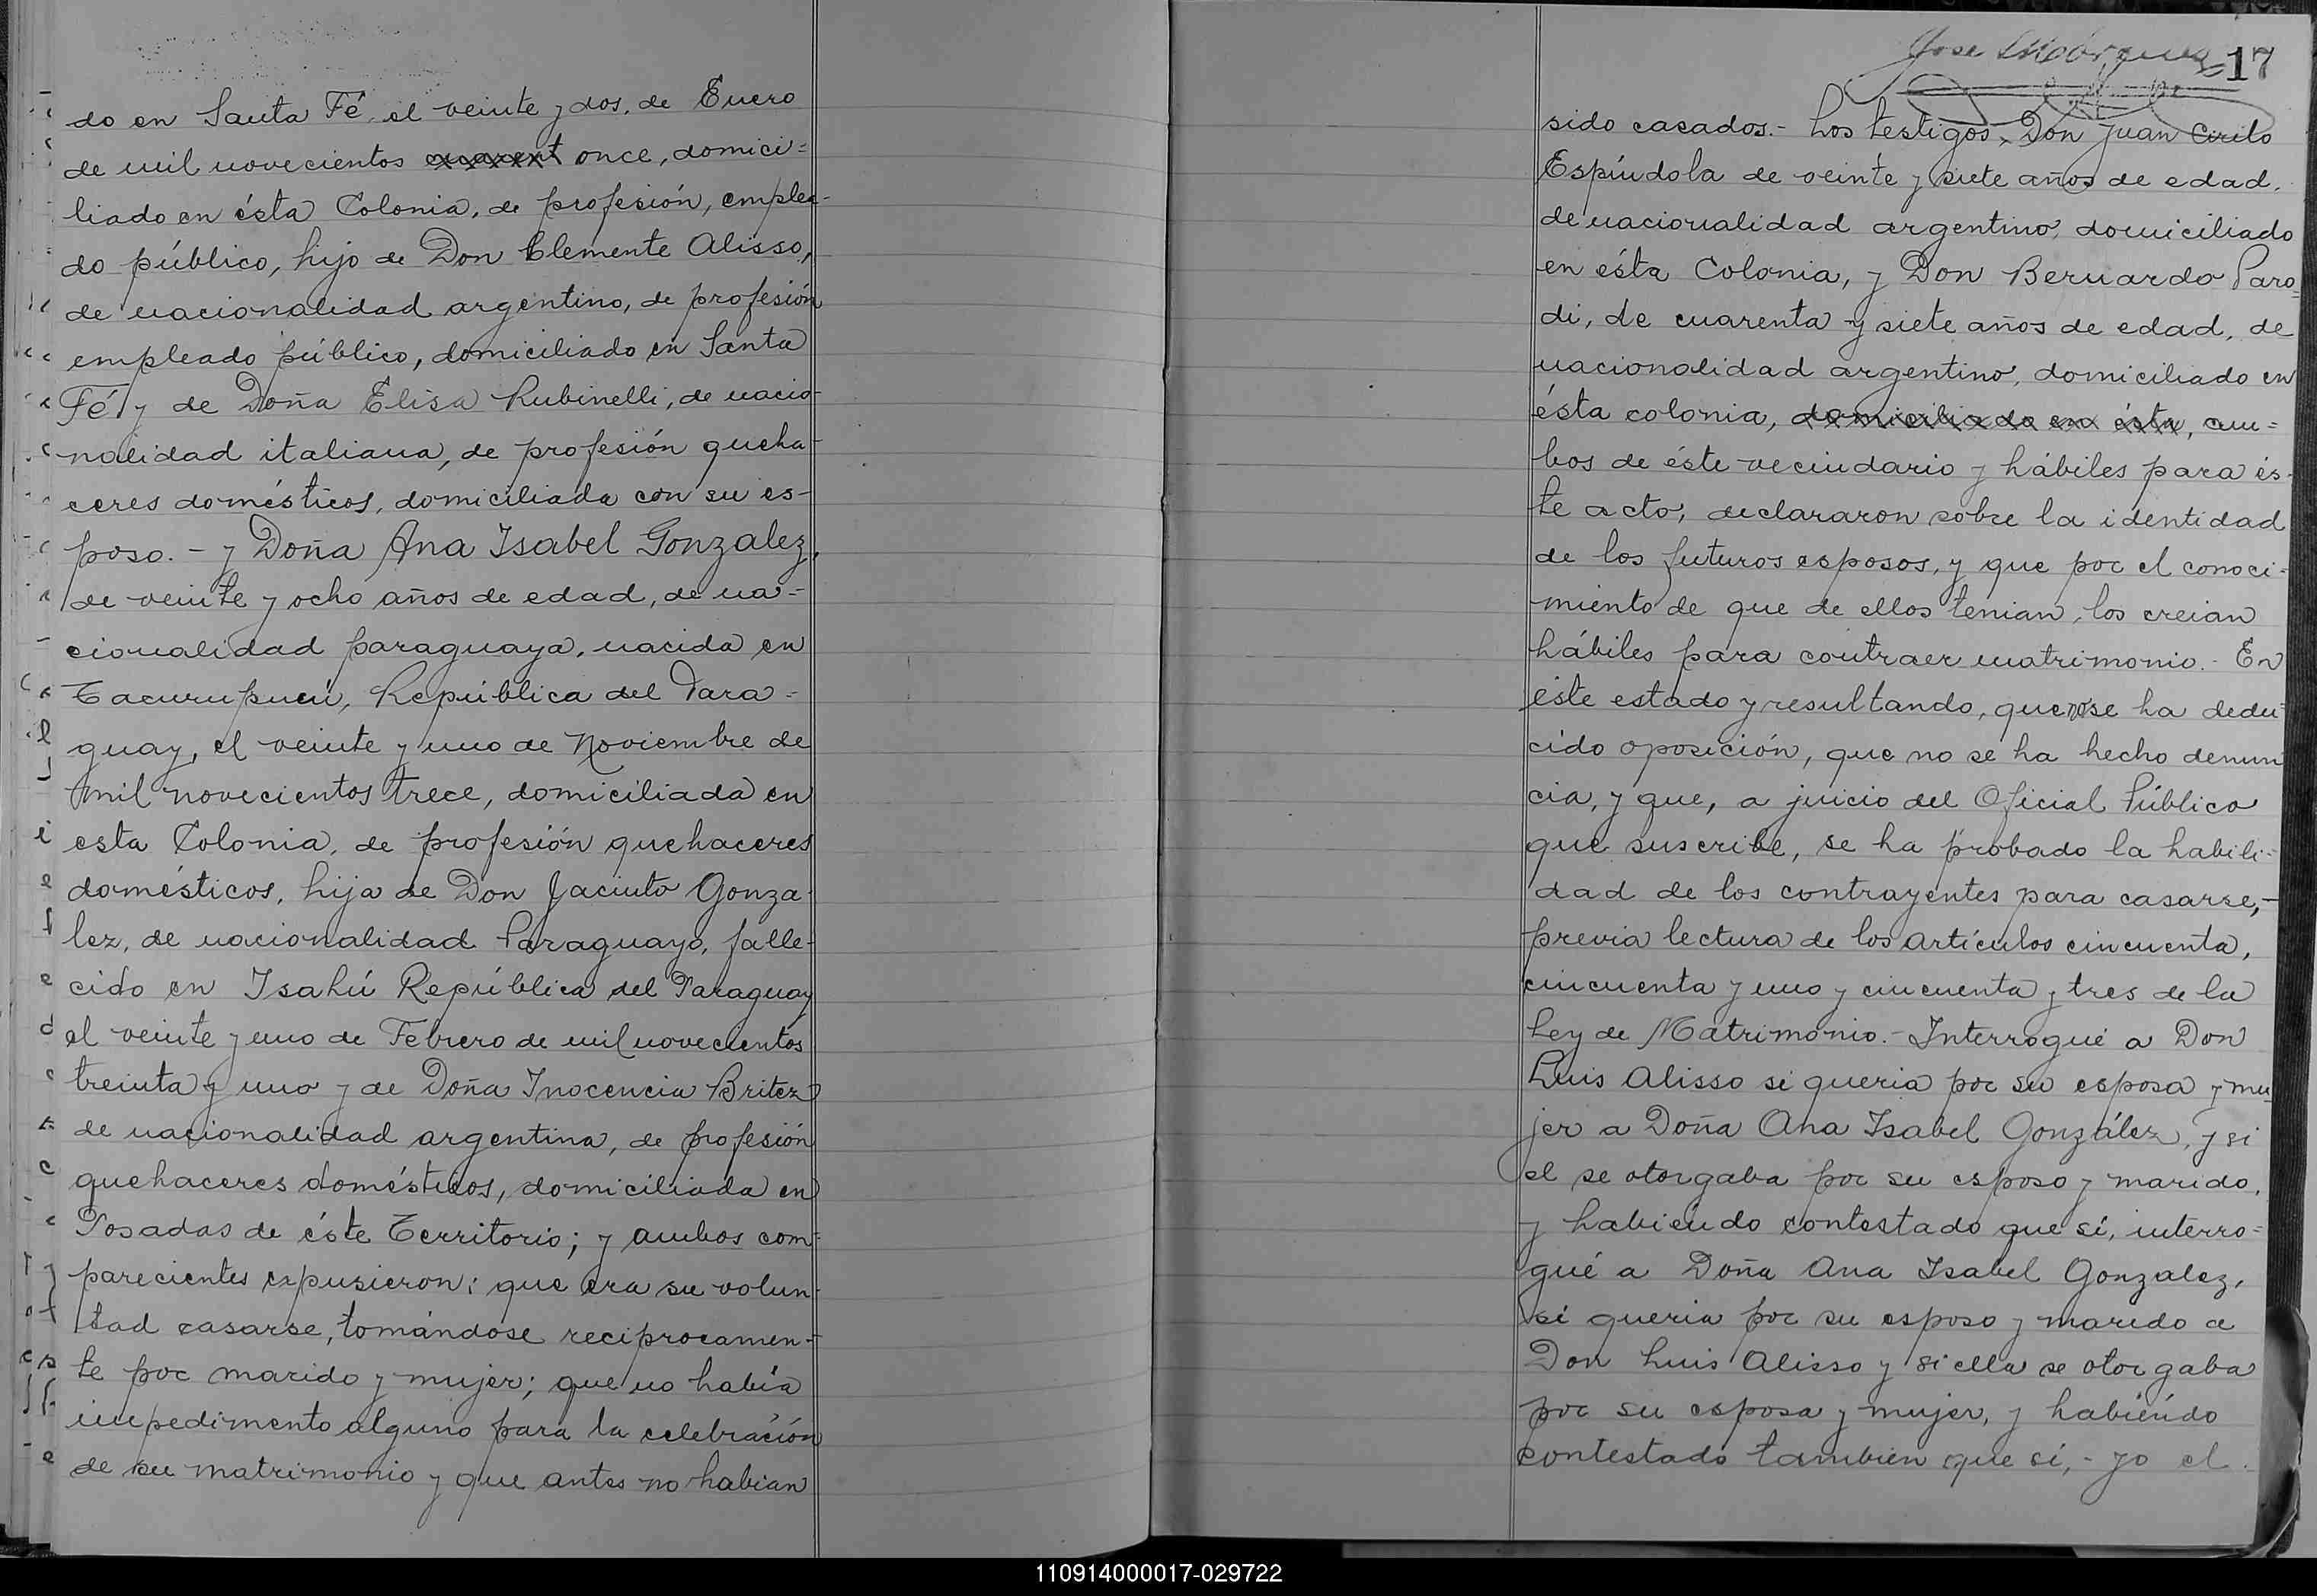 do en Santa Fé, el veinte y dos, de Enero
de mil novecientos cuarent once, domici=
liado en ésta Colonia, de profesión, emplea-
do público, hijo de Don Clemente Alisso,
de nacionalidad argentino, de profesión
empleado público, domiciliado en Santa
Fé y de Doña Elisa Rubinelli, de nacio-
nalidad italiana, de profesión queha-
ceres domésticos, domiciliada con su es-
poso. - y Doña Ana Isabel Gonzalez,
de veinte y ocho años de edad, de na=
cionalidad paraguaya, nacida en
Tacurupucú, República del Para=
guay, el veinte y uno de Noviembre de
mil novecientos trece, domiciliada en
esta Colonia, de profesión quehaceres
domésticos, hija de Don Jacinto Gonza-
lez, de nacionalidad Paraguayo, falle-
cido en Isahú República del Paraguay
el veinte y uno de Febrero de mil novecientos
treinta y uno y de Doña Inocencia Britez
de nacionalidad argentina, de profesión
quehaceres domésticos, domiciliada en
Posadas de éste Territorio; y ambos com-
parecientes expusieron: que era su volun-
tad casarse, tomándose reciprocamen-
te por marido y mujer; que no había
impedimento alguno para la celebración
de su matrimonio y que antes no habian
17
sido casados.- Los testigos, Don Juan Cirilo
Espíndola de veinte y siete años de edad,
de nacionalidad argentino, domiciliado
en ésta Colonia, y Don Bernardo Paro-
di, de cuarenta y siete años de edad, de
nacionalidad argentino, domiciliado en
ésta colonia, domiciliado en ésta, am=
bos de éste vecindario y hábiles para és-
te acto, declararon sobre la identidad
de los futuros esposos, y que por el conoci-
miento de que de ellos tenian, los creian
hábiles para contraer matrimonio.- En
éste estado y resultando, que no se ha dedu-
cido oposición, que no se ha hecho denun
cia, y que, a juicio del Oficial Público
que suscribe, se ha probado la habili-
dad de los contrayentes para casarse,-
previa lectura de los artículos cincuenta,
cincuenta y uno y cincuenta y tres de la
Ley de Matrimonio.- Interrogué a Don
Luis Alisso si queria por su esposa y mu
jer a Doña Ana Isabel González, y si
el se otorgaba por su esposo y marido,
y habiéndo contestado que sí, interro=
gué a Doña Ana Isabel Gonzalez,
si queria por su esposo y marido a
Don Luis Alisso y si ella se otorgaba
por su esposa y mujer, y habiéndo
contestado tambien que sí,- yo el
110914000017-029722